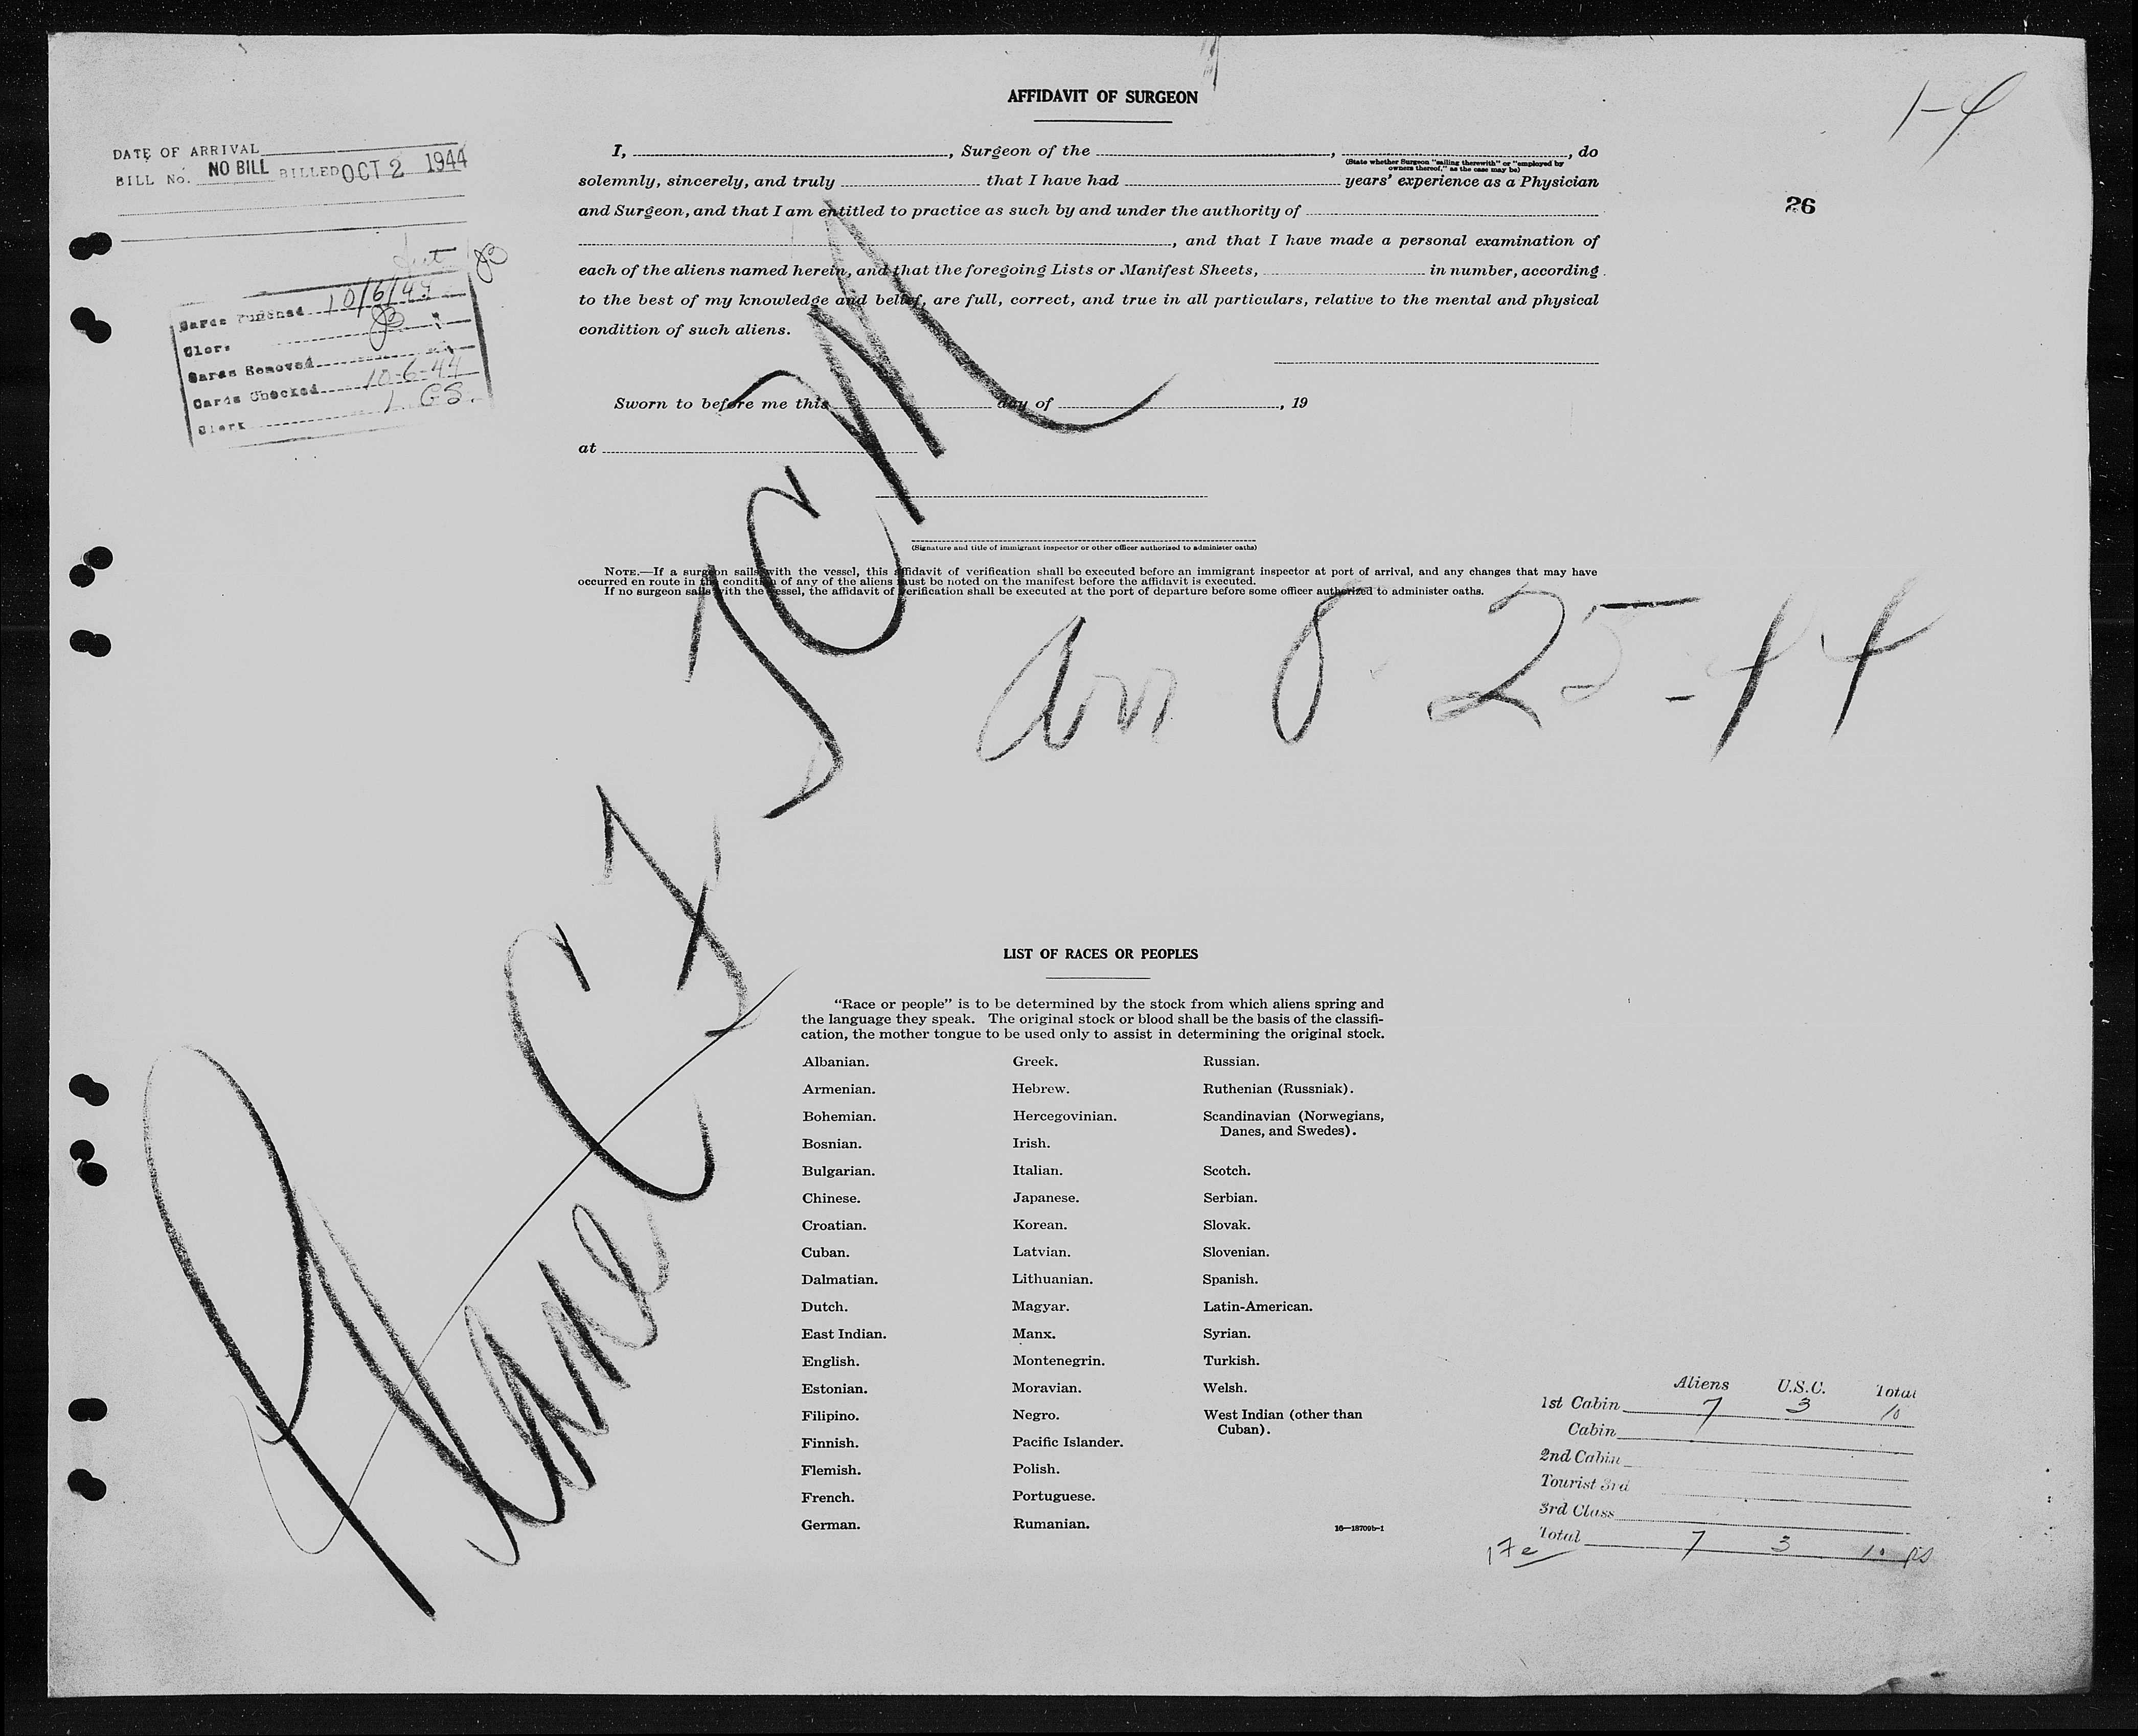 AFFIDAVIT OF SURGEON
1-4
DATE OF ARRIVAL
BILL No. NO BILL BILLED OCT 2 1944
26
I, , Surgeon of the , , do
(State whether Surgeon "sailing therewith" or "employed by
owners thereof," as the case may be)
solemnly, sincerely, and truly that I have had years' experience as a Physician
and Surgeon, and that I am entitled to practice as such by and under the authority of
, and that I have made a personal examination of
each of the aliens named herein, and that the foregoing Lists or Manifest Sheets, in number, according
to the best of my knowledge and belief, are full, correct, and true in all particulars, relative to the mental and physical
condition of such aliens.
Cards Punched 10/6/44
Clerk
Cards Removed
Cards Checked 10-6-44
Clerk
Sworn to before me this day of , 19
at
(Signature and title of immigrant inspector or other officer authorized to administer oaths)
NOTE.—If a surgeon sails with the vessel, this affidavit of verification shall be executed before an immigrant inspector at port of arrival, and any changes that may have
occurred en route in the condition of any of the aliens must be noted on the manifest before the affidavit is executed.
If no surgeon sails with the vessel, the affidavit of verification shall be executed at the port of departure before some officer authorized to administer oaths.
Arr 8-25-44
Plane
LIST OF RACES OR PEOPLES
"Race or people" is to be determined by the stock from which aliens spring and
the language they speak. The original stock or blood shall be the basis of the classifi-
cation, the mother tongue to be used only to assist in determining the original stock.
Albanian. Greek. Russian.
Armenian. Hebrew. Ruthenian (Russniak).
Bohemian. Hercegovinian. Scandinavian (Norwegians,
Danes, and Swedes).
Bosnian. Irish.
Bulgarian. Italian. Scotch.
Chinese. Japanese. Serbian.
Croatian. Korean. Slovak.
Cuban. Latvian. Slovenian.
Dalmatian. Lithuanian. Spanish.
Dutch. Magyar. Latin-American.
East Indian. Manx. Syrian.
English. Montenegrin. Turkish.
Estonian. Moravian. Welsh.
Filipino. Negro. West Indian (other than
Cuban).
Finnish. Pacific Islander.
Flemish. Polish.
French. Portuguese.
German. Rumanian.
16—18709b-1
Aliens U.S.C. Total
1st Cabin 7 3 10
Cabin
2nd Cabin
Tourist 3rd
3rd Class
Total 7 3 10